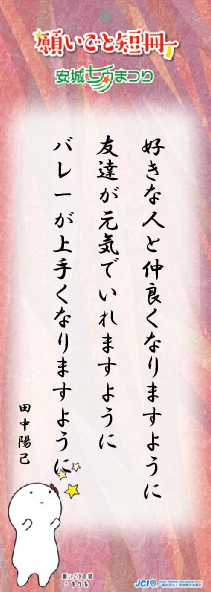 願いごと短冊
安城七夕まつり
好きな人と仲良くなりますように
友達が元気でいれますように
バレーが上手くなりますように
田中陽己
願いごと短冊
JCI